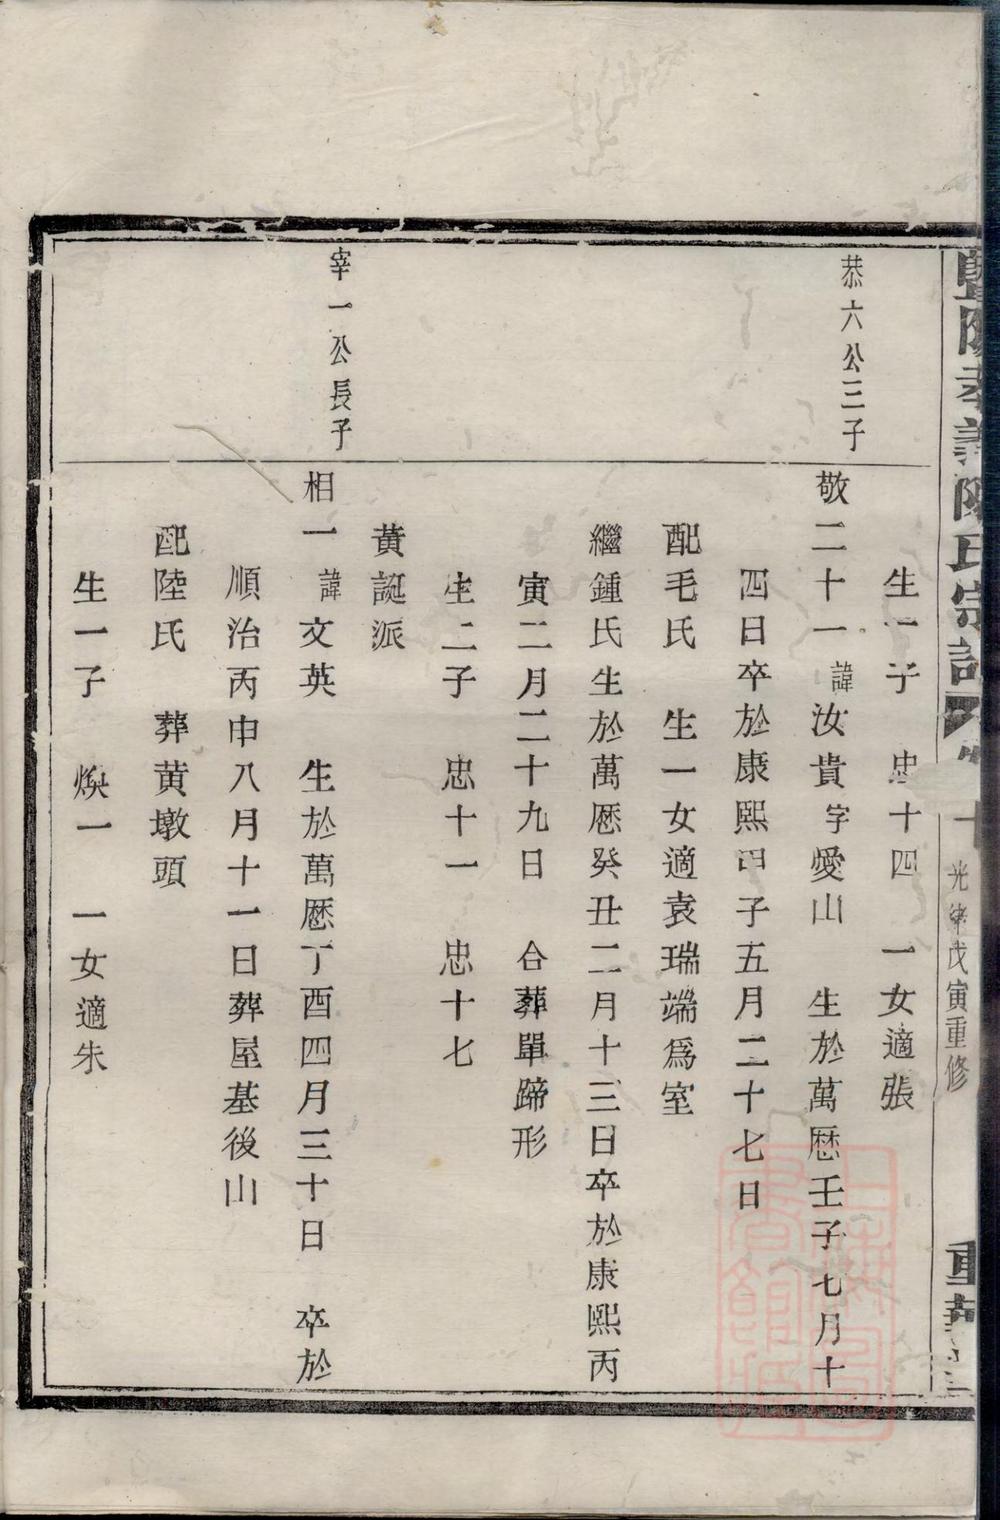 暨陽孝義陳氏宗譜 卷十 光緒戊寅重修
恭六公三子
生一子 忠十四 一女適張
敬二十一諱汝貴字愛山 生於萬厯壬子七月十
四日卒於康熙甲子五月二十七日
配毛氏 生一女適袁瑞端為室
繼鍾氏生於萬厯癸丑二月十三日卒於康熙丙
寅二月二十九日 合葬單蹄形
生二子 忠十一 忠十七
黃誕派
宰一公長子
相一諱文英 生於萬厯丁酉四月三十日 卒於
順治丙申八月十一日葬屋基後山
配陸氏 葬黃墩頭
生一子 煥一 一女適朱